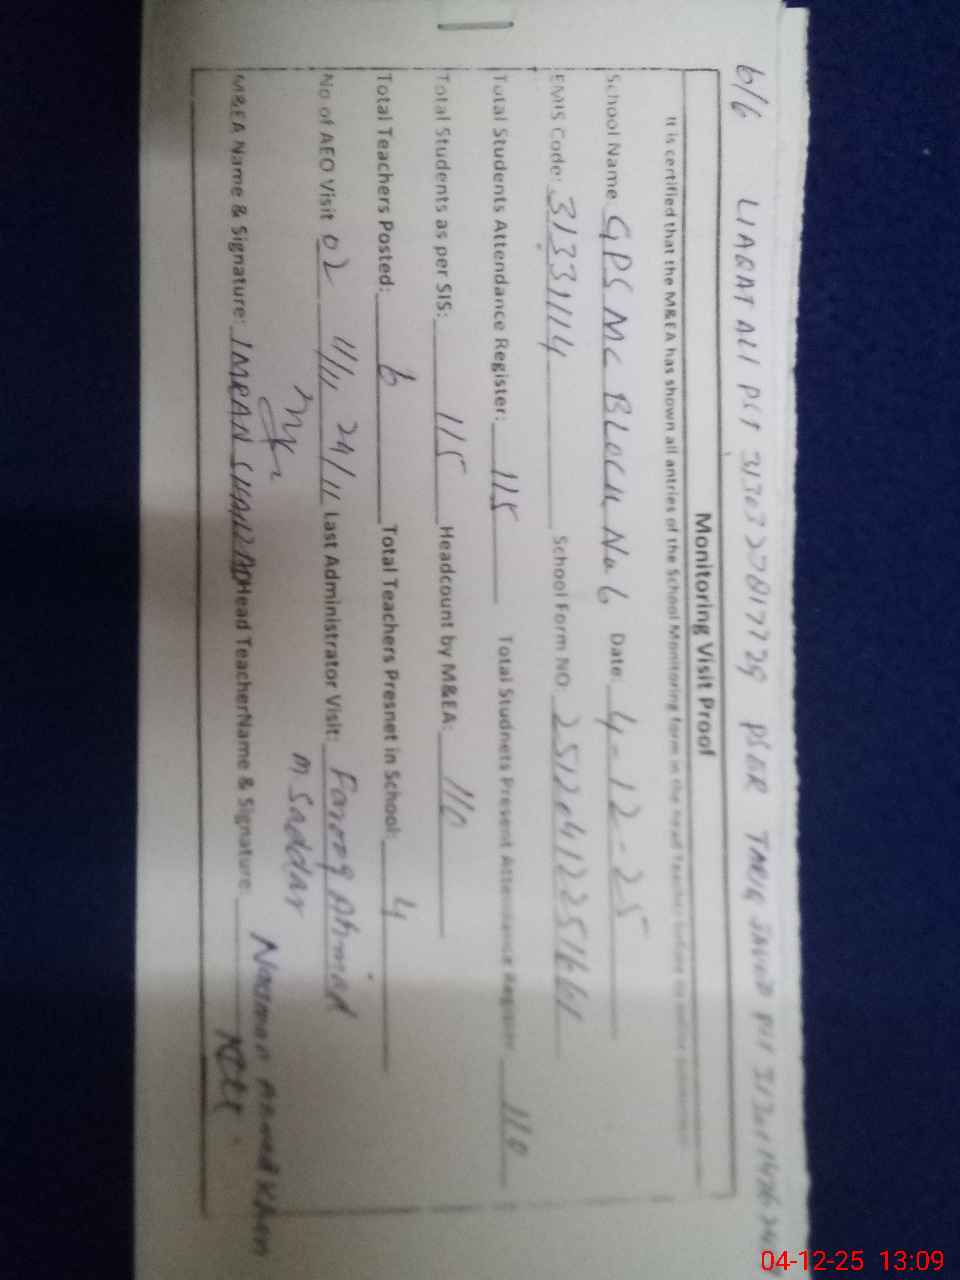 6/6 LIAQAT ALI PST PSER TARIQ
Monitoring Visit Proof
It is certified that the M&EA has shown all antries of the School Monitoring form in the head Teacher before
School Name GPS MC BLOCK No 6 Date: 4-12-25
EMIS Code: 31331114 School Form NO:
Total Students Attendance Register: 115 Total Studnets Present Attendance Register 110
Total Students as per SIS: 115 Headcount by M&EA: 110
Total Teachers Posted: 6 Total Teachers Presnet in School: 4
No of AEO Visit 02 11/11 24/11 Last Administrator Visit: Farooq Ahmad
M. Saddar
M&EA Name & Signature: IMRAN Head TeacherName & Signature: Nauman Ahmad Khan
04-12-25 13:09